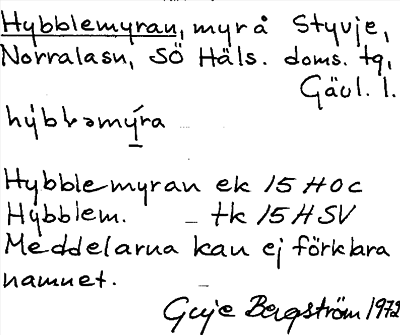 Hybblemyran, myr å Styvje,
Norralasn, SÖ Häls. doms. tg,
Gävl. l.
hýbbləmy̱̍ra
Hybblemyran ek 15 H 0 c
Hybblem. – tk 15 H SV
Meddelarna kan ej förklara
namnet.
Guje Bergström 1972